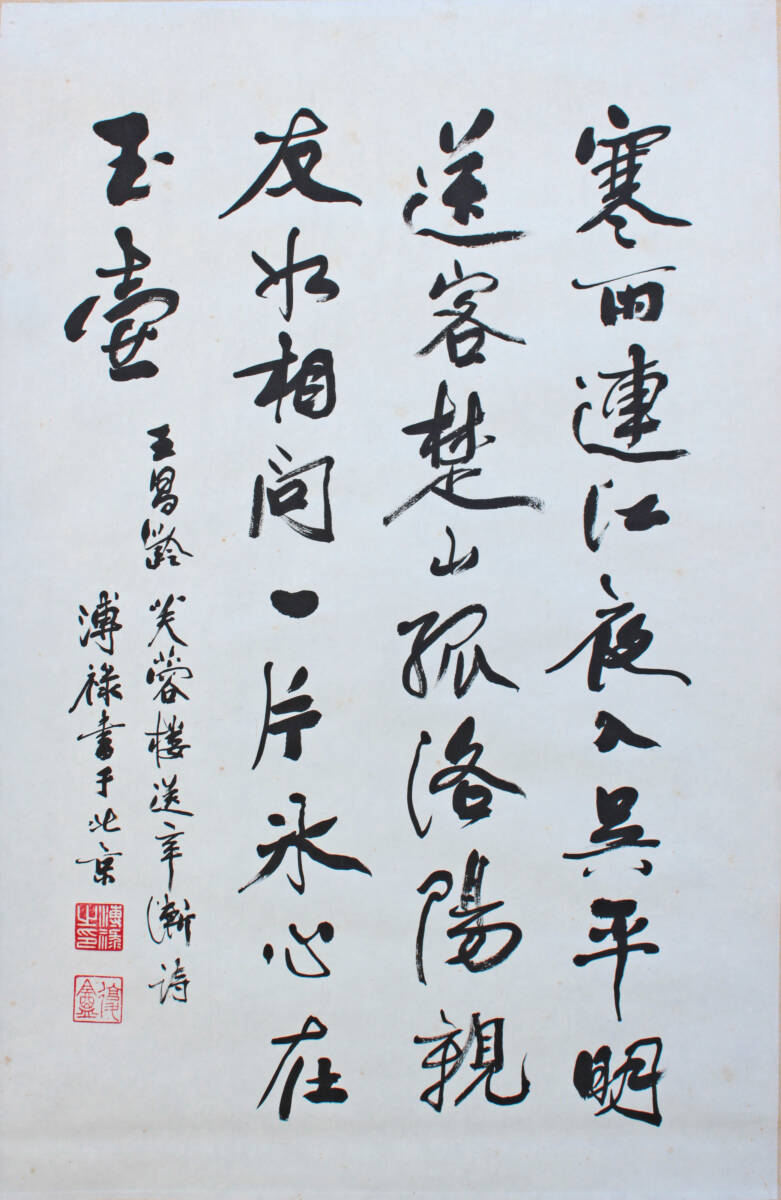 寒雨連江夜入吳平明
送客楚山孤洛陽親
友如相问一片冰心在
玉壺
王昌齡芙蓉楼送辛漸詩
溥禄書于北京
溥祿之印